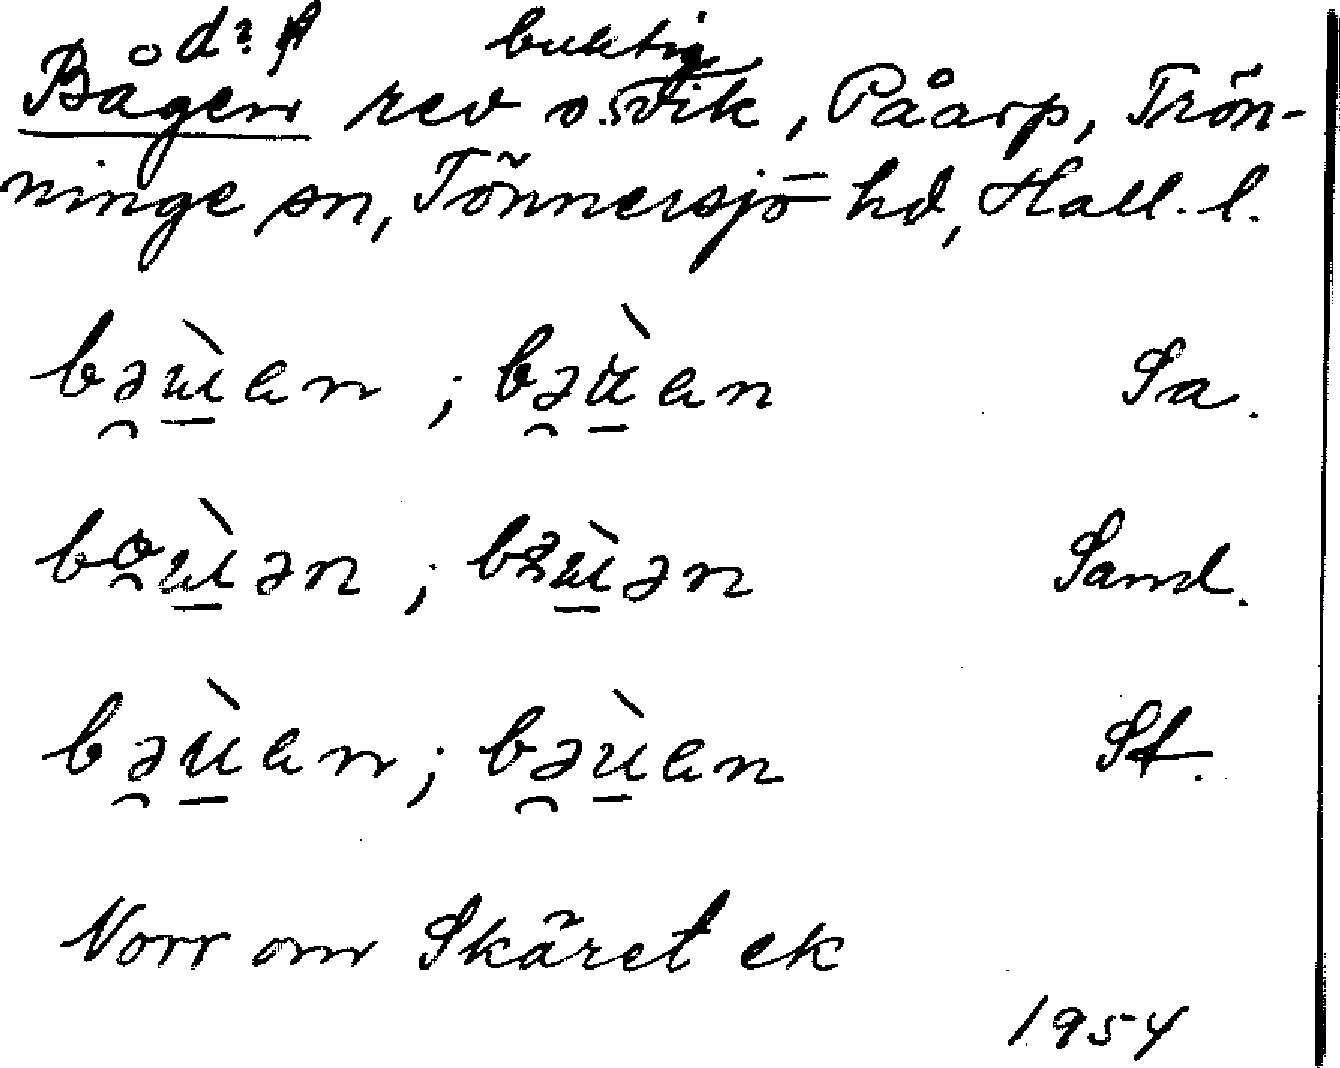 d? buktig
Bågen rev o. vik, Påarp, Trön-
ninge sn, Tönnersjö hd, Hall. l.
bə̯ù̠en ; bə̯ù̠en Sa.
ù̠ən ; ù̠ən Sand.
bə̯ù̠en ; bə̯ù̠en St.
Norr om Skäret ek
1954